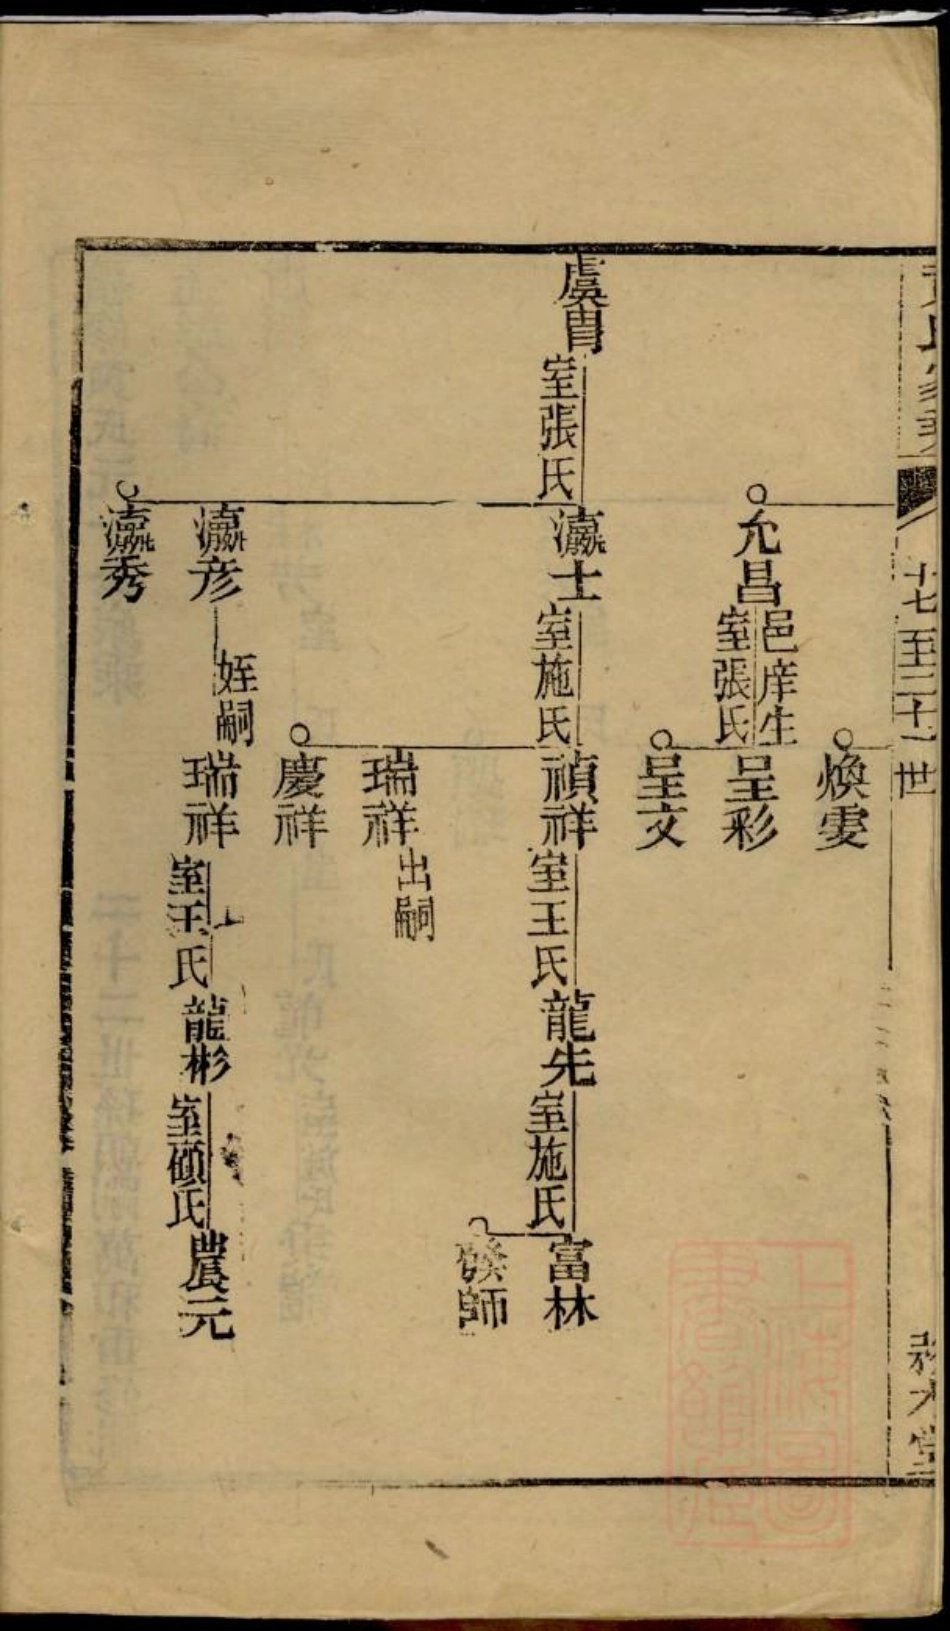 十七至二十一世
煥雯
允昌
邑庠生
室張氏
呈彩
呈文
虞胄
室張氏
瀛士
室施氏
禎祥
室王氏
龍先
室施氏
富林
發師
瑞祥
出嗣
慶祥
瀛彦
姪嗣
瑞祥
室王氏
龍彬
室顧氏
農元
瀛秀